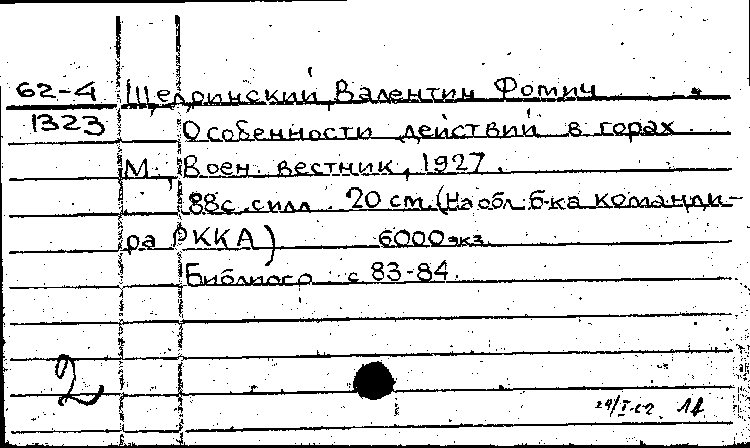 62-4 Щедринский, Валентин Фомич
1323 Особенности действий в горах.
М., Воен. вестник, 1927.
88с. с илл. 20 см. (На обл. б-ка команди-
ра РККА) 6000 экз.
Библиогр. с 83-84.
2